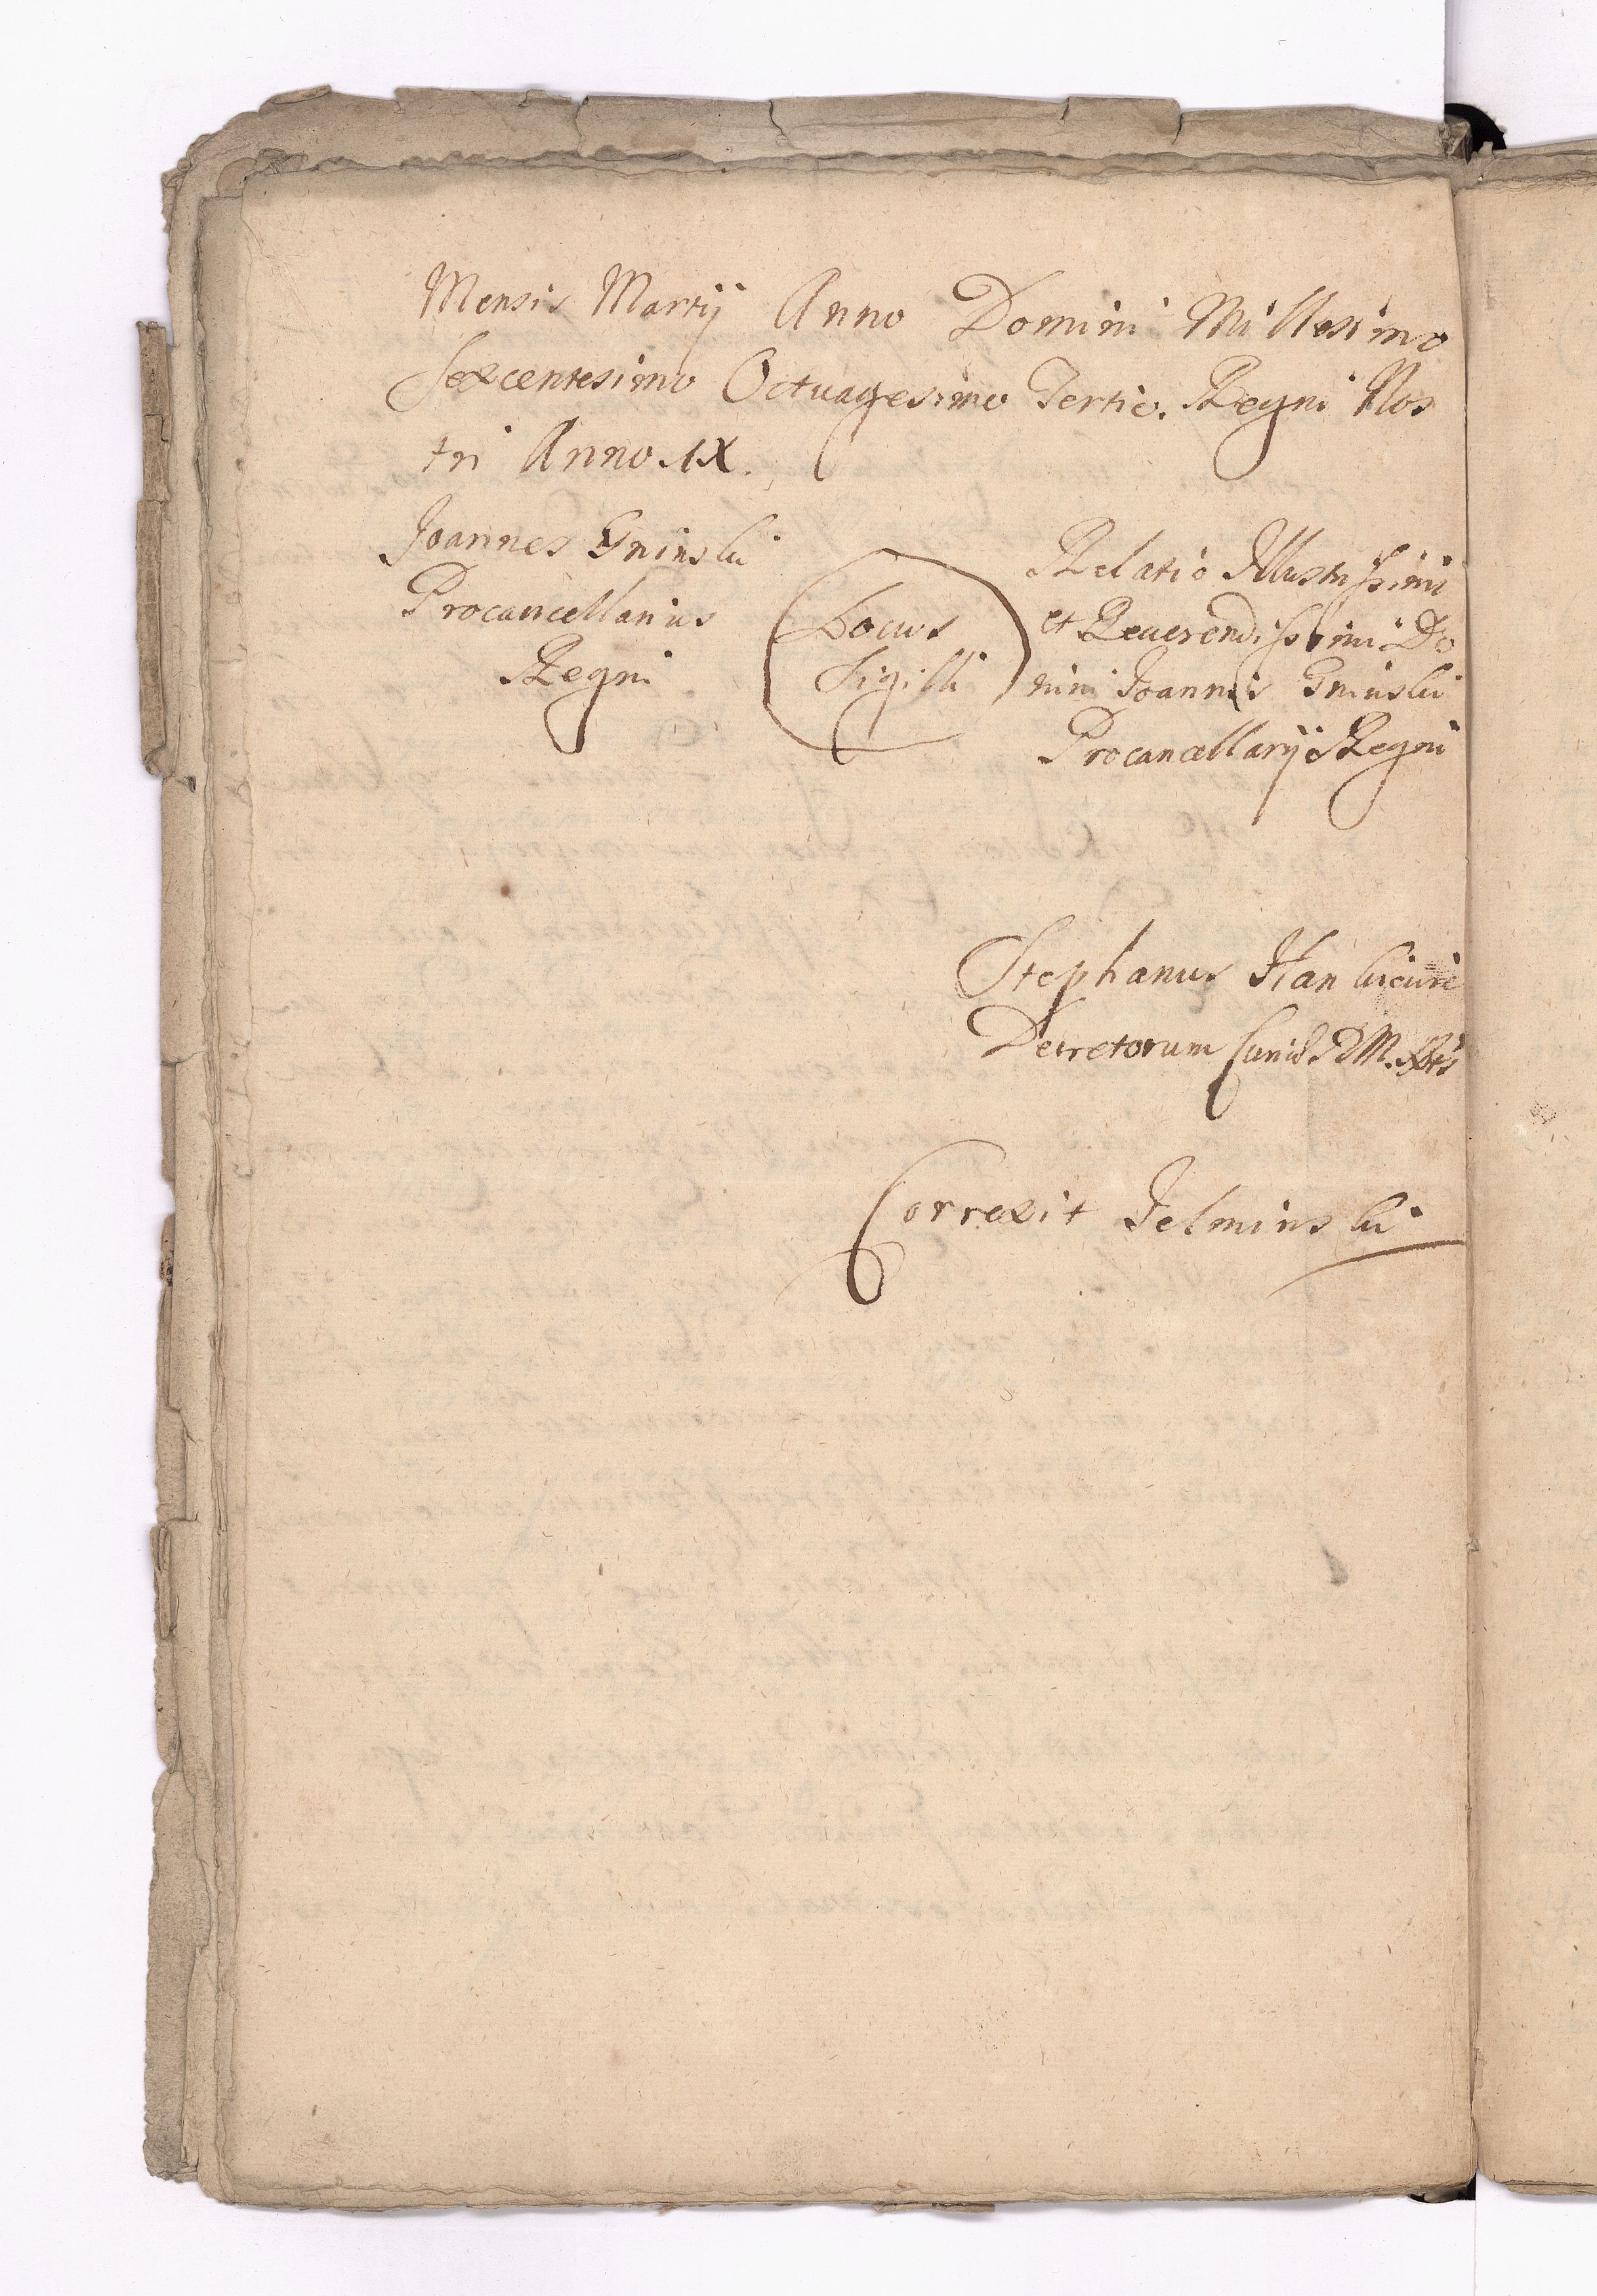 Mensis Martij Anno Domini Millesimo
Sexcentesimo Octuagesimo Tertio. Regni Nos
tri Anno IX.
Joannes Gninski
Procancellarius
Regni
Locus
Sigilli
Relatio Illustrissimi
et Reuerendissimi Do
mini Joannis Gninski
Procancellarij Regni
Stephanus Hankieuic
Decretorum Curiae R M.
Correxit Jelminski